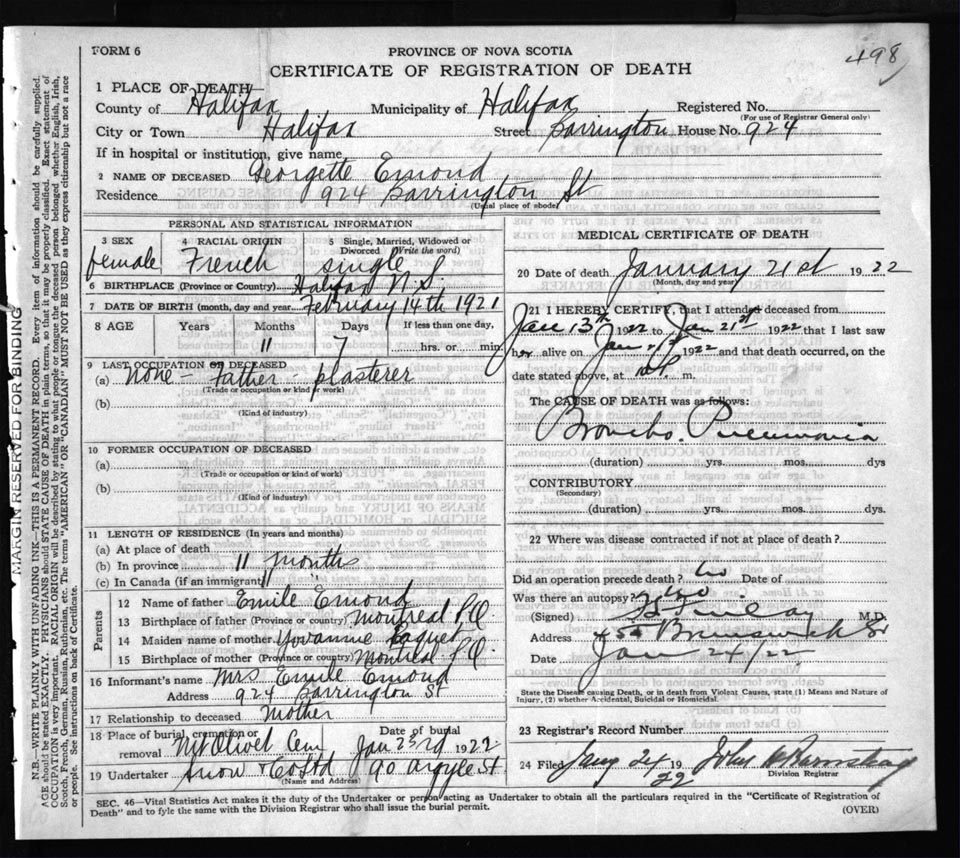 FORM 6
PROVINCE OF NOVA SCOTIA
498
CERTIFICATE OF REGISTRATION OF DEATH
1 PLACE OF DEATH
County of Halifax Municipality of Halifax Registered No.
(For use of Registrar General only)
City or Town Halifax Street Barrington House No. 924
If in hospital or institution, give name
2 NAME OF DECEASED Georgette Emond
Residence 924 Barrington St
(Usual place of abode)
PERSONAL AND STATISTICAL INFORMATION
3 SEX 4 RACIAL ORIGIN 5 Single, Married, Widowed or Divorced (Write the word)
female French single
6 BIRTHPLACE (Province or Country) Halifax N.S.
7 DATE OF BIRTH (month, day and year) February 14th 1921
8 AGE Years Months Days If less than one day,
11 7 hrs. or min.
9 LAST OCCUPATION OF DECEASED
(a) none - Father plasterer
(Trade or occupation or kind of work)
(b)
(Kind of industry)
10 FORMER OCCUPATION OF DECEASED
(a)
(Trade or occupation or kind of work)
(b)
(Kind of industry)
11 LENGTH OF RESIDENCE (In years and months)
(a) At place of death
(b) In province 11 months
(c) In Canada (if an immigrant) 11 "
Parents
12 Name of father Emile Emond
13 Birthplace of father (Province or country) Montreal P.Q.
14 Maiden name of mother Paquet
15 Birthplace of mother (Province or country) Montreal P.Q.
16 Informant's name Mrs Emile Emond
Address 924 Barrington St
17 Relationship to deceased Mother
18 Place of burial, cremation or removal Mt Olivet Cem Date of burial Jan 23rd 1922
19 Undertaker Snow & Co Ltd 90 Argyle St
(Name and Address)
MEDICAL CERTIFICATE OF DEATH
20 Date of death January 21st 1922
(Month, day and year)
21 I HEREBY CERTIFY, that I attended deceased from
Jan 13th 1922 to Jan 21st 1922 that I last saw
her alive on Jan 1922 and that death occurred, on the
date stated above, at m.
The CAUSE OF DEATH was as follows:
Broncho. Pneumonia
(duration) yrs. mos. dys
CONTRIBUTORY
(Secondary)
(duration) yrs. mos. dys.
22 Where was disease contracted if not at place of death?
Did an operation precede death? no Date of
Was there an autopsy? no
(Signed) M.D.
Address Brunswick St
Date Jan 24/22
State the Disease causing Death, or in death from Violent Causes, state (1) Means and Nature of
Injury, (2) whether Accidental, Suicidal or Homicidal.
23 Registrar's Record Number
24 Filed Jany 24 1922 John
Division Registrar
SEC. 46—Vital Statistics Act makes it the duty of the Undertaker or person acting as Undertaker to obtain all the particulars required in the "Certificate of Registration of
Death" and to fyle the same with the Division Registrar who shall issue the burial permit.
(OVER)
MARGIN RESERVED FOR BINDING
N.B.—WRITE PLAINLY WITH UNFADING INK—THIS IS A PERMANENT RECORD. Every item of information should be carefully supplied.
AGE should be stated EXACTLY. PHYSICIANS should STATE CAUSE OF DEATH in plain terms, so that it may be properly classified. Exact statement of
OCCUPATION is very important. RACIAL ORIGIN will be described by stating to what people or tongue the deceased person belonged whether English, Irish,
Scotch, French, German, Russian, Ruthenian, etc. The terms "AMERICAN" OR "CANADIAN" MUST NOT BE USED as they express citizenship but not a race
or people. See instructions on back of Certificate.